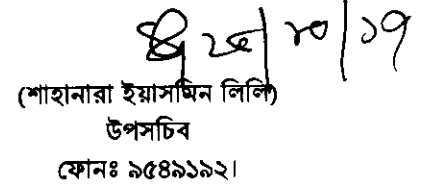 (শাহানারা ইয়াসমিন লিলি)
উপসচিব
ফোনঃ ৯৫৪৯১৯২।